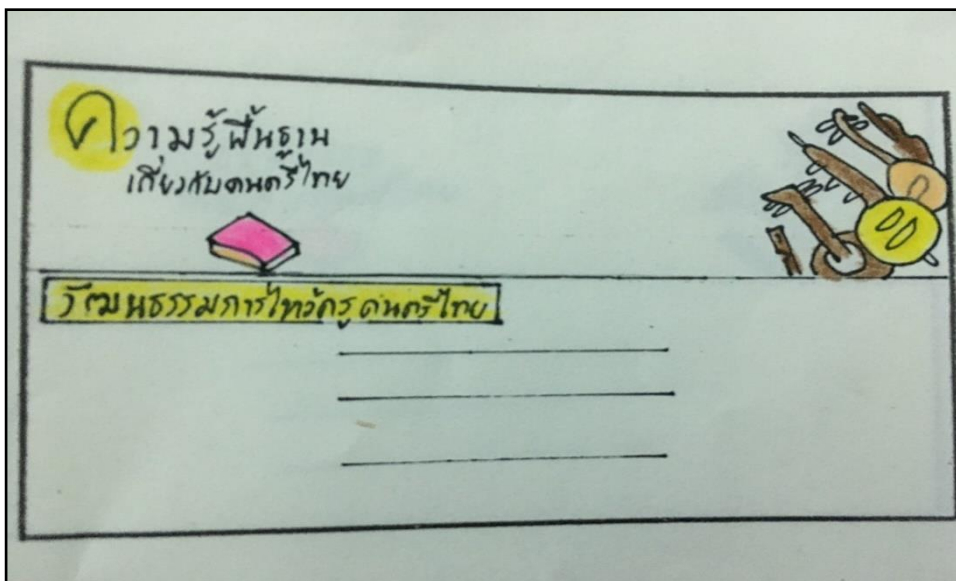 ความรู้พื้นฐาน
เกี่ยวกับดนตรีไทย
วัฒนธรรมการไหว้ครูดนตรีไทย